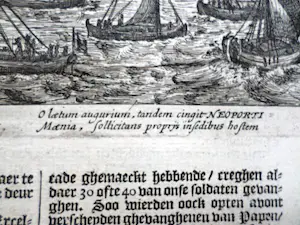 O lætum augurium, tandem cingit NEOPORTI
Mœnia, sollicitans proprijs insidibus hostem
aer te
deur
eade ghemaeckt hebbende/ creghen al-
daer 30 ofte 40 van onse soldaten gevan-
ghen. Soo wierden oock opten avont
verscheyden ghevanghenen van Papen/